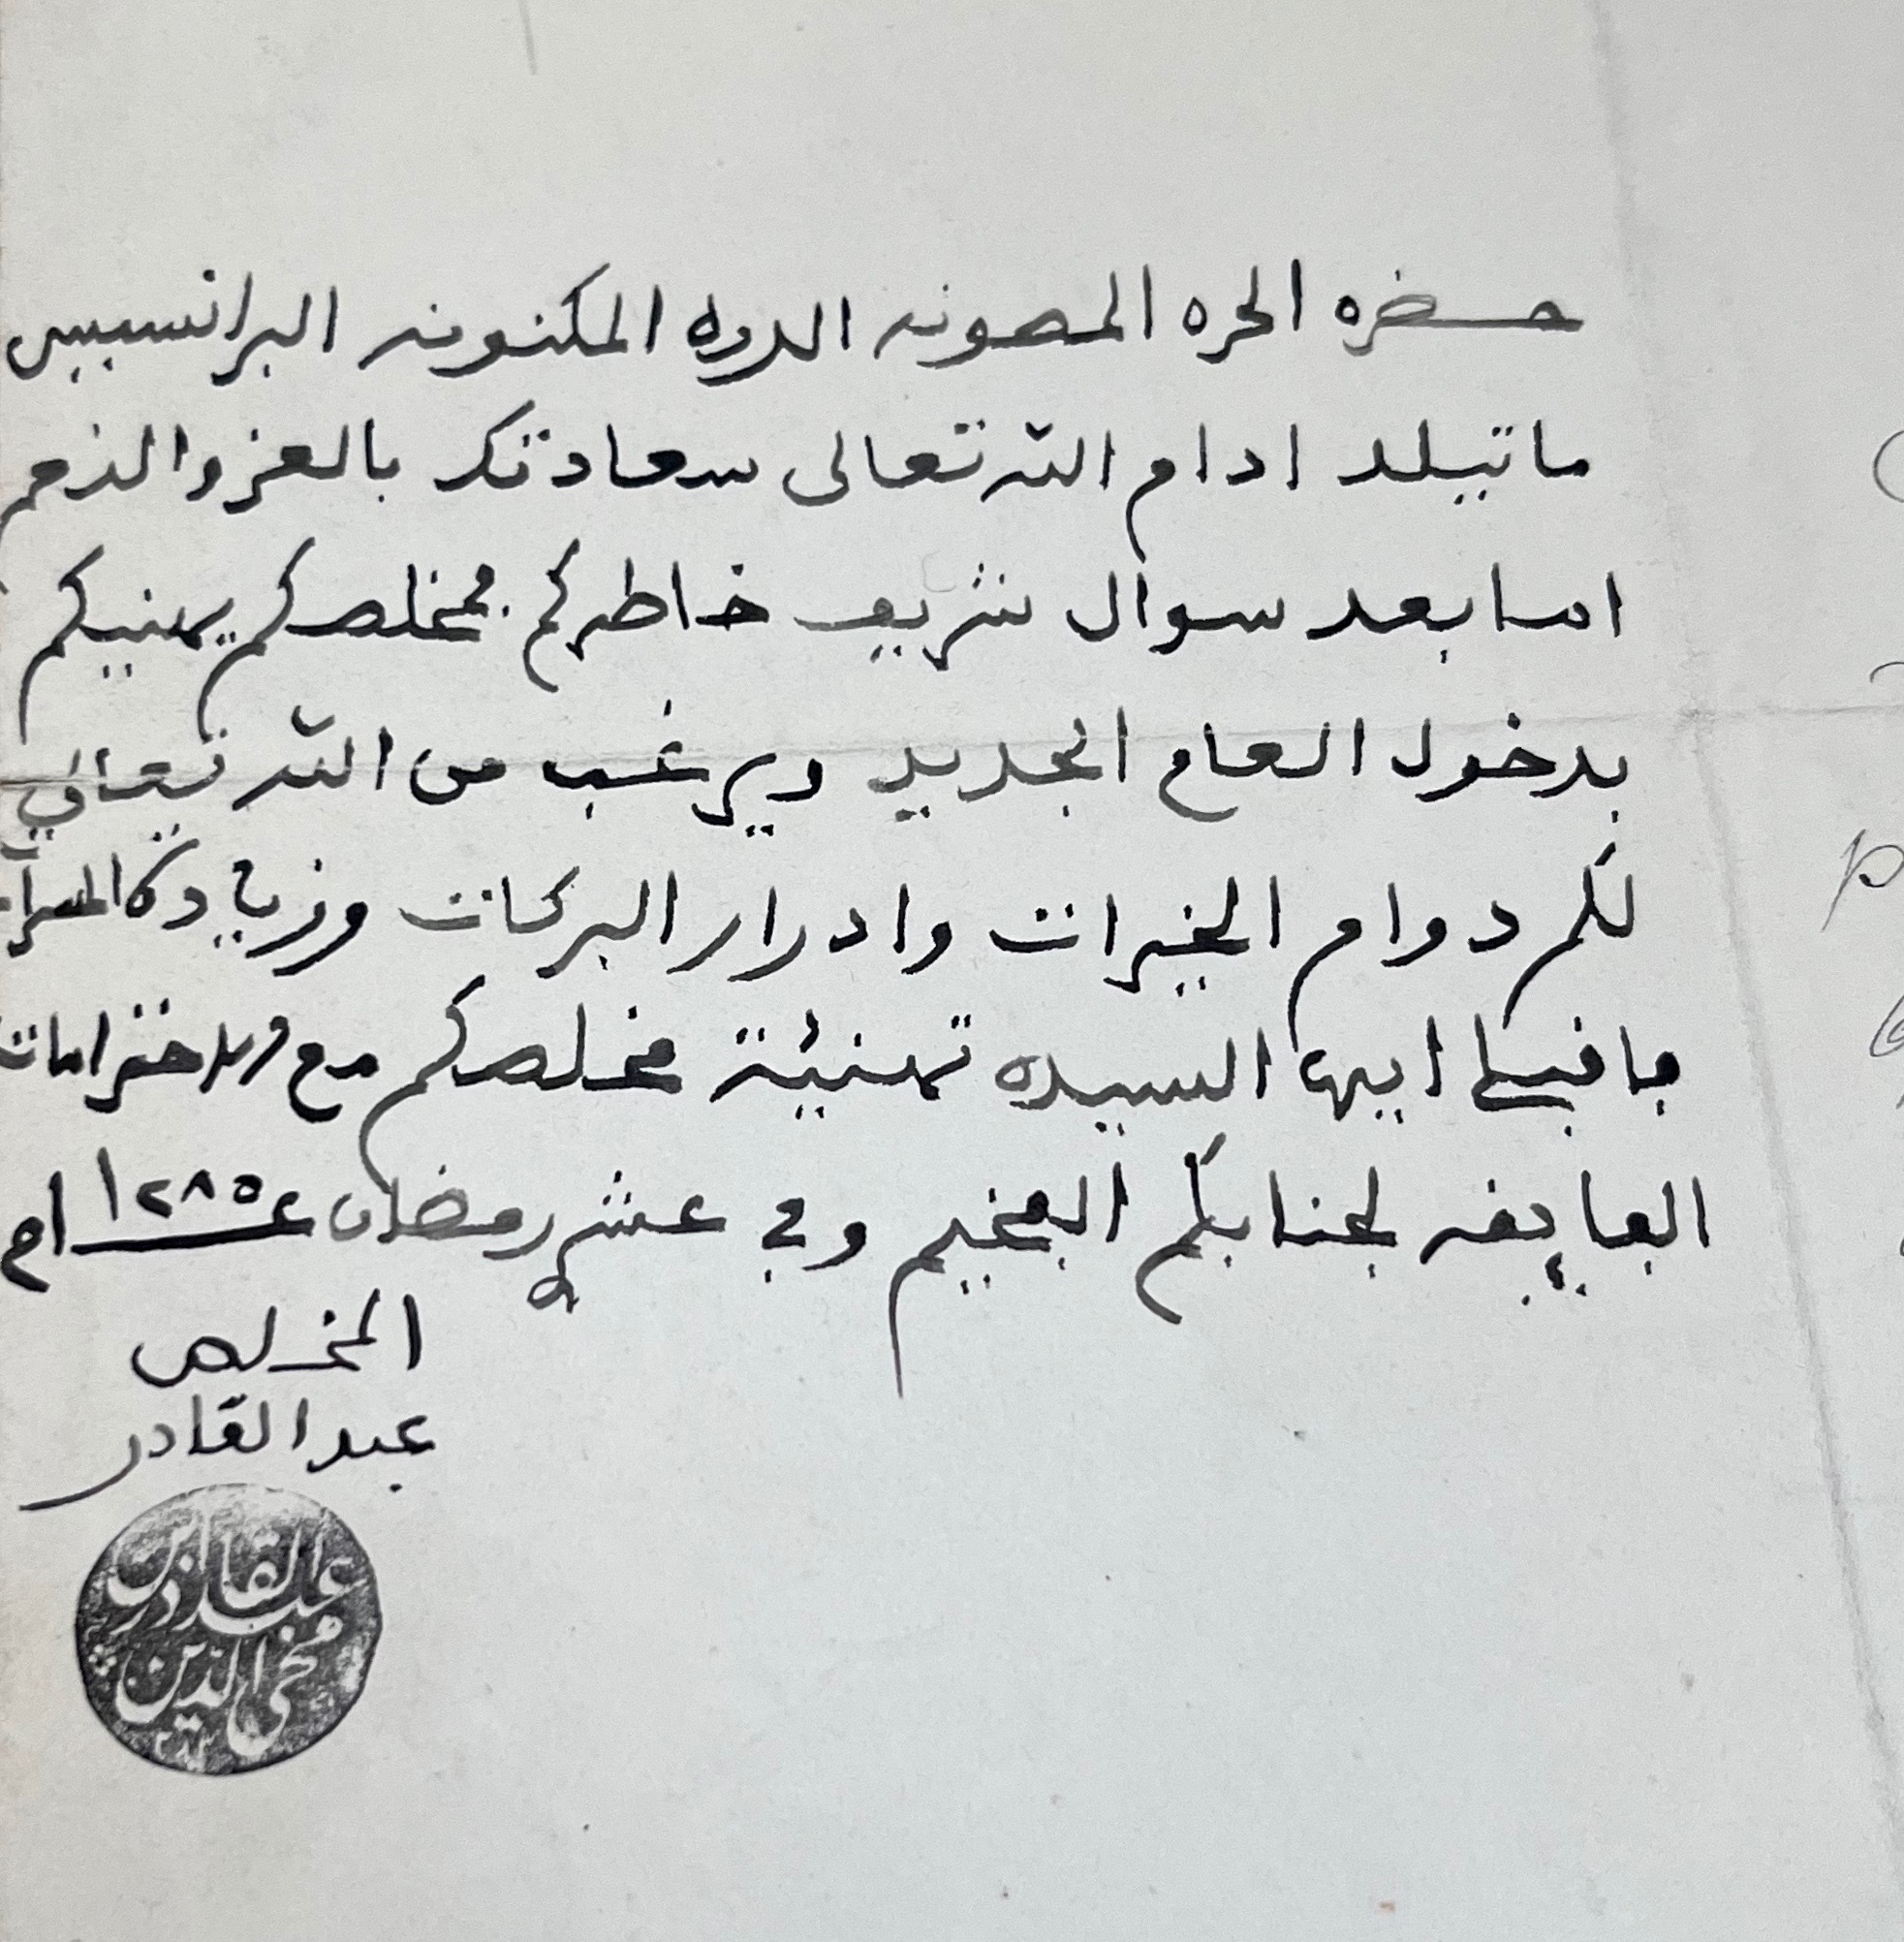 حضره الحره المصونه الدره المكنونه البرانسيس
ماتيلد ادام الله تعالى سعادتك بالعز والنعم
اما بعد سوال شريف خاطركم فمخلصكم يهنيكم
بدخول العام الجديد ويرغب من الله تعالى
لكم دوام الخيرات وادرار البركات وزيادة المسرآت
فاقبلى ايها السيده تهنيئة مخلصكم مع الاحترامات
الفايقه لجنابكم الفخيم وفي عشر رمضان ١٢٨٥
المخلص
عبد القادر
عبد القادر بن
محي الدين